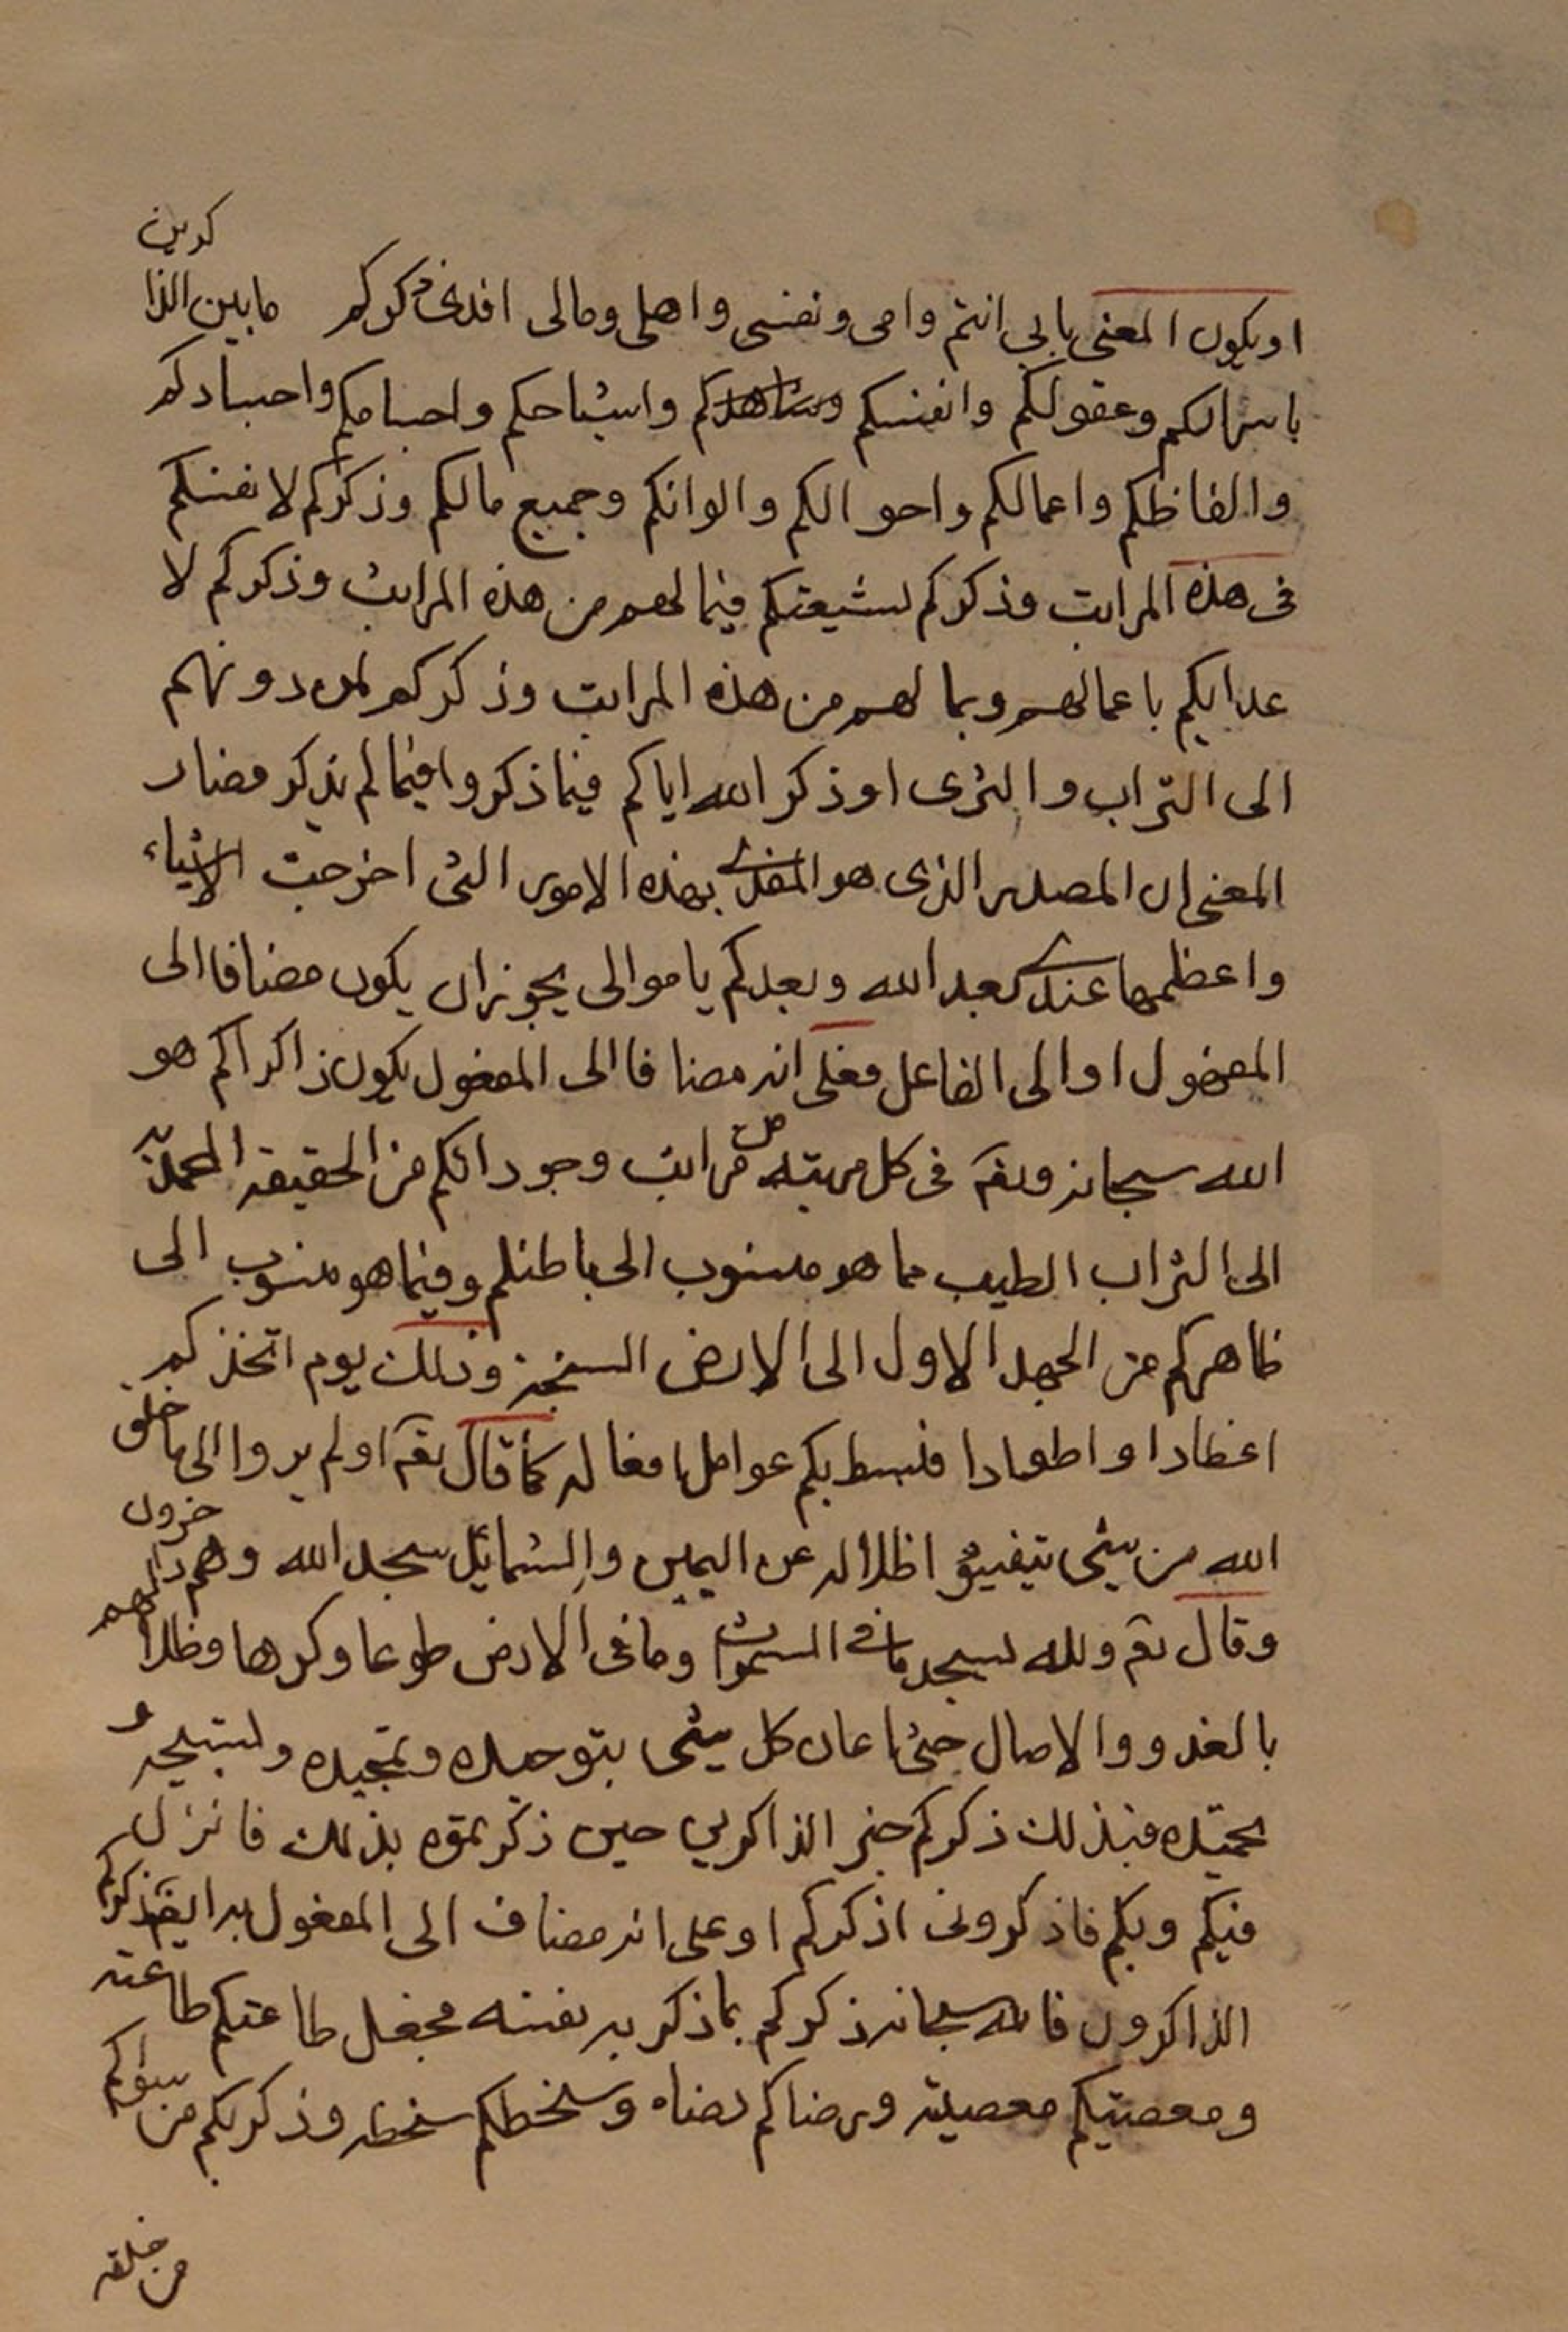 او يكون المعنى بابي انتم وامى ونفسى واهلى ومالى افدى ذكركم ما بين الذا
كرين
باسراركم وعقولكم وانفسكم واشباحكم واجسامكم واجسادكم
والفاظكم واعمالكم واحوالكم والوانكم وجميع مالكم وذكركم لانفسكم
فى هذه المراتب وذكركم لشيعتكم فيما لهم من هذه المراتب وذكركم لا
عدايكم باعمالهم وبما لهم من هذه المراتب وذكركم لمن دونهم
الى التراب والثرى او ذكر الله اياكم فيما ذكروا فيما لم يذكر فصار
المعنى ان المصدر الذى هو المفدى بهذه الامور التى اخرجت الاشياء
واعظمها عندى بعد الله وبعدكم يا موالى يجوز ان يكون مضافا الى
المفعول او الى الفاعل فعلى انه مضافا الى المفعول يكون ذاكراكم هو
الله سبحانه وتعـ فى كل مرتبة من مراتب وجوداتكم من الحقيقه المحمديه
الى التراب الطيب مما هو منسوب الى باطنكم وفيما هو منسوب الى
ظاهركم من الجهد الاول الى الارض السبخة وذلك يوم اتخذكم
اعضادا واطوادا فبسط بكم عوامل افعاله كما قال تعـ اولم يروا الى ما خلق
الله من شئ يتفيؤا ظلاله عن اليمين والشمايل سجد الله وهم داخرون
وقال تعـ ولله يسجد ما فى السموات وما فى الارض طوعا وكرها وظلالهم
بالغدو والاصال حتى اعان كل شئ بتوحيده وتمجيده وتسبيحه و
تحميده فبذلك ذكركم خير الذاكرين حين ذكرتموه بذلك فانزل
فيكم وبكم فاذكرونى اذكركم او على انه مضاف الى المفعول به ايضـ ذكركم
الذاكرون فالله سبحانه ذكركم بما ذكر به نفسه فجعل طاعتكم طاعته
ومعصيتكم معصيته ورضاكم رضاه وسخطكم سخطه وذكر بكم من سواكم
من خلقه